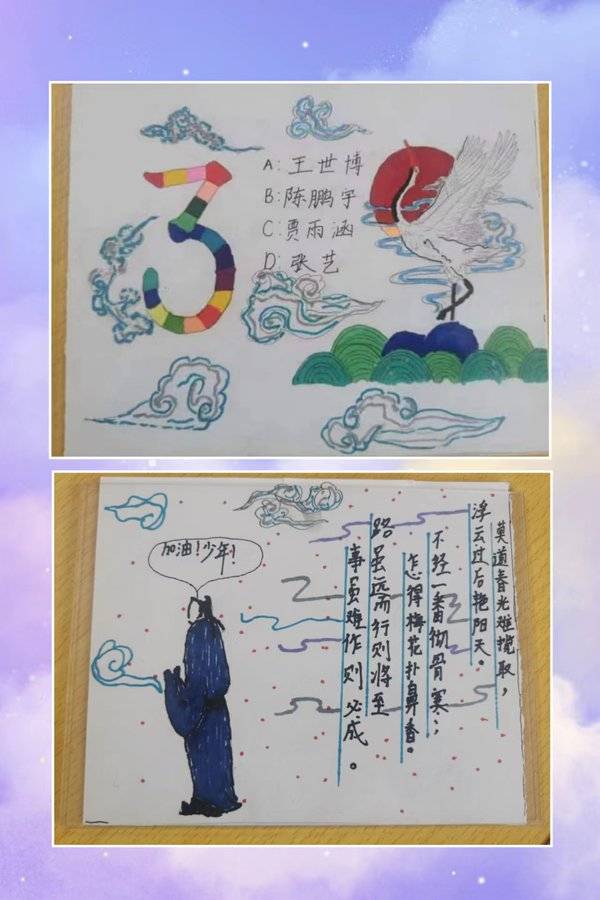 3
A: 王世博
B: 陈鹏宇
C: 贾雨涵
D: 张艺
加油！少年！
莫道春光难揽取，
浮云过后艳阳天。
不经一番彻骨寒，
怎得梅花扑鼻香。
路虽远而行则将至
事虽难作则必成。